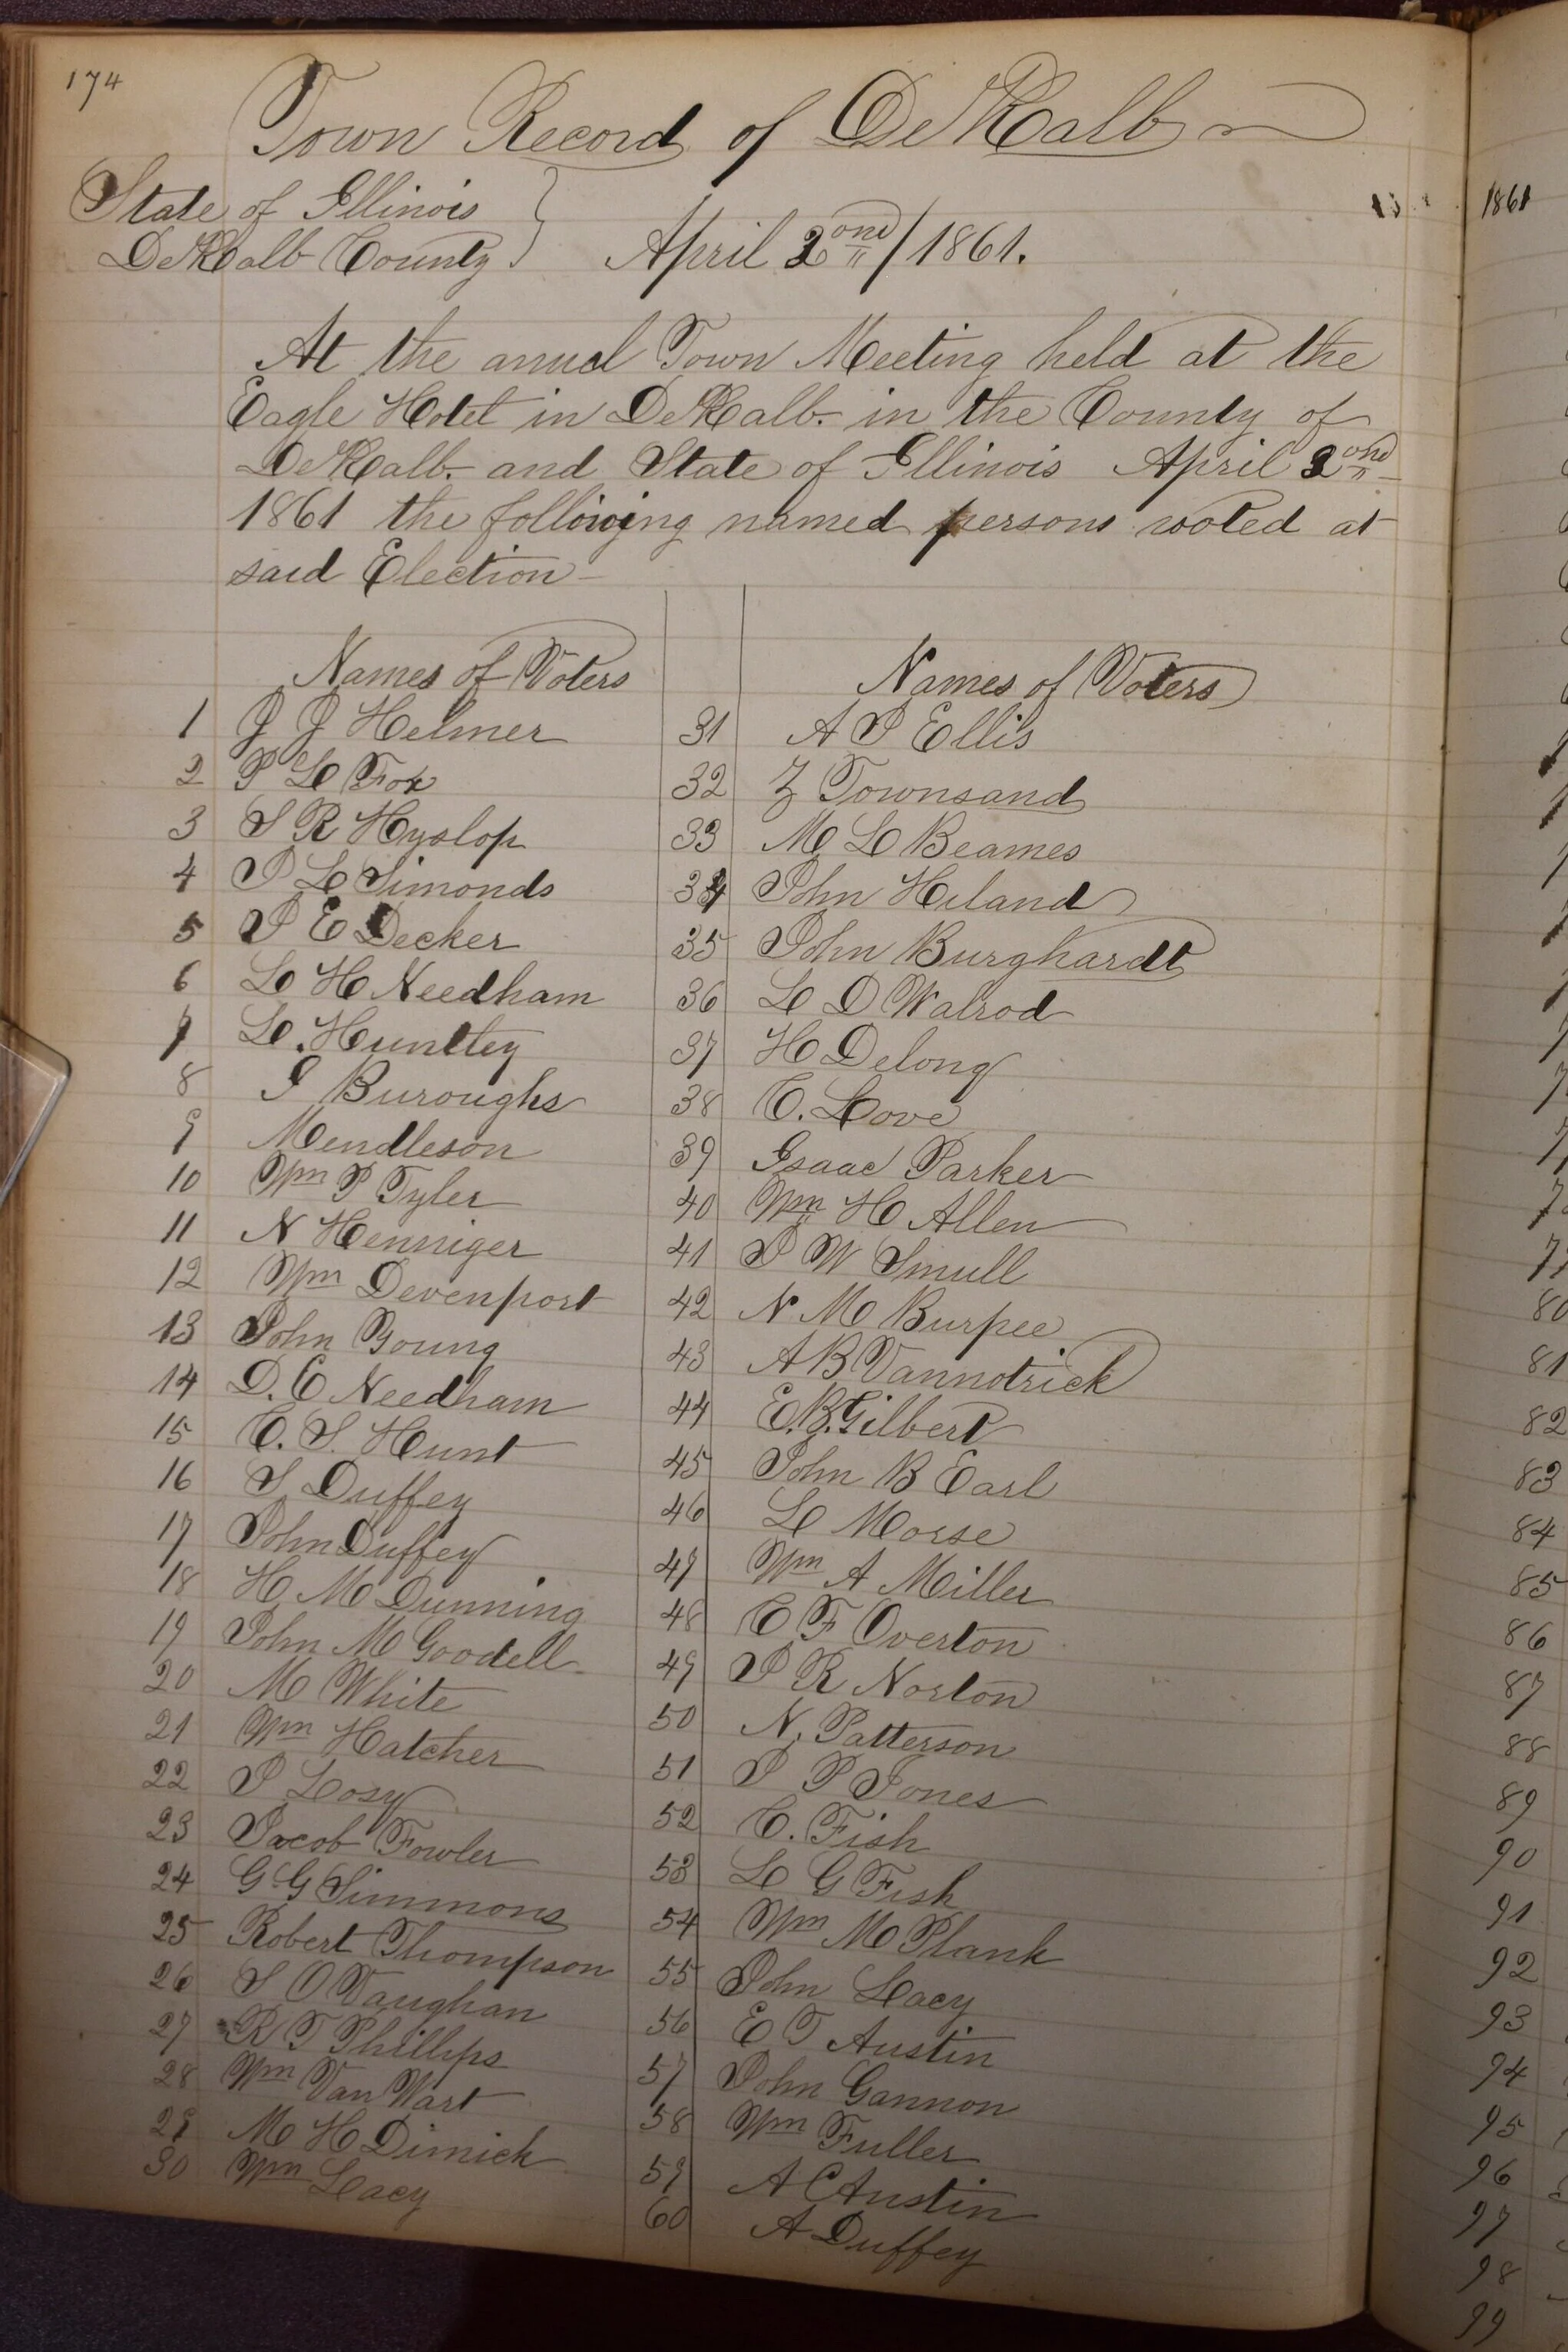 174
Town Record of DeKalb
State of Illinois
DeKalb County } April 2ond/1861.
At the anual Town Meeting held at the
Eagle Hotel in DeKalb. in the County of
DeKalb. and State of Illinois April 2ond
1861 the following named persons voted at
said Election
Names of Voters
1 J J Helmer
2 P L Fox
3 S R Hyslop
4 J L Simonds
5 J E Decker
6 L H Needham
7 L. Huntley
8 I Buroughs
9 Mendleson
10 Wm P Tyler
11 N Henniger
12 Wm Devenport
13 John Young
14 D. C Needham
15 C. S. Hunt
16 S Duffey
17 John Duffey
18 H M Dunning
19 John M Goodell
20 M White
21 Wm Hatcher
22 J Losy
23 Jacob Fowler
24 G G Simmons
25 Robert Thompson
26 S O Vaughan
27 R T Phillips
28 Wm Van Wart
29 M H Dimick
30 Wm Lacy
Names of Voters
31 A P Ellis
32 Z Townsand
33 M L Beames
34 John Hiland
35 John Burghardt
36 L D Walrod
37 H Delong
38 C. Love
39 Isaac Parker
40 Wm H Allen
41 J W Smull
42 N M Burpee
43 A B Vannotrick
44 E. B. Gilbert
45 John B Earl
46 L Morse
47 Wm A Miller
48 C F Overton
49 J R Norton
50 N. Patterson
51 J P Jones
52 C. Fish
53 L G Fish
54 Wm M Plank
55 John Lacy
56 E T Austin
57 John Gannon
58 Wm Fuller
59 A C Austin
60 A Duffey
1861
80
81
82
83
84
85
86
87
88
89
90
91
92
93
94
95
96
97
98
99